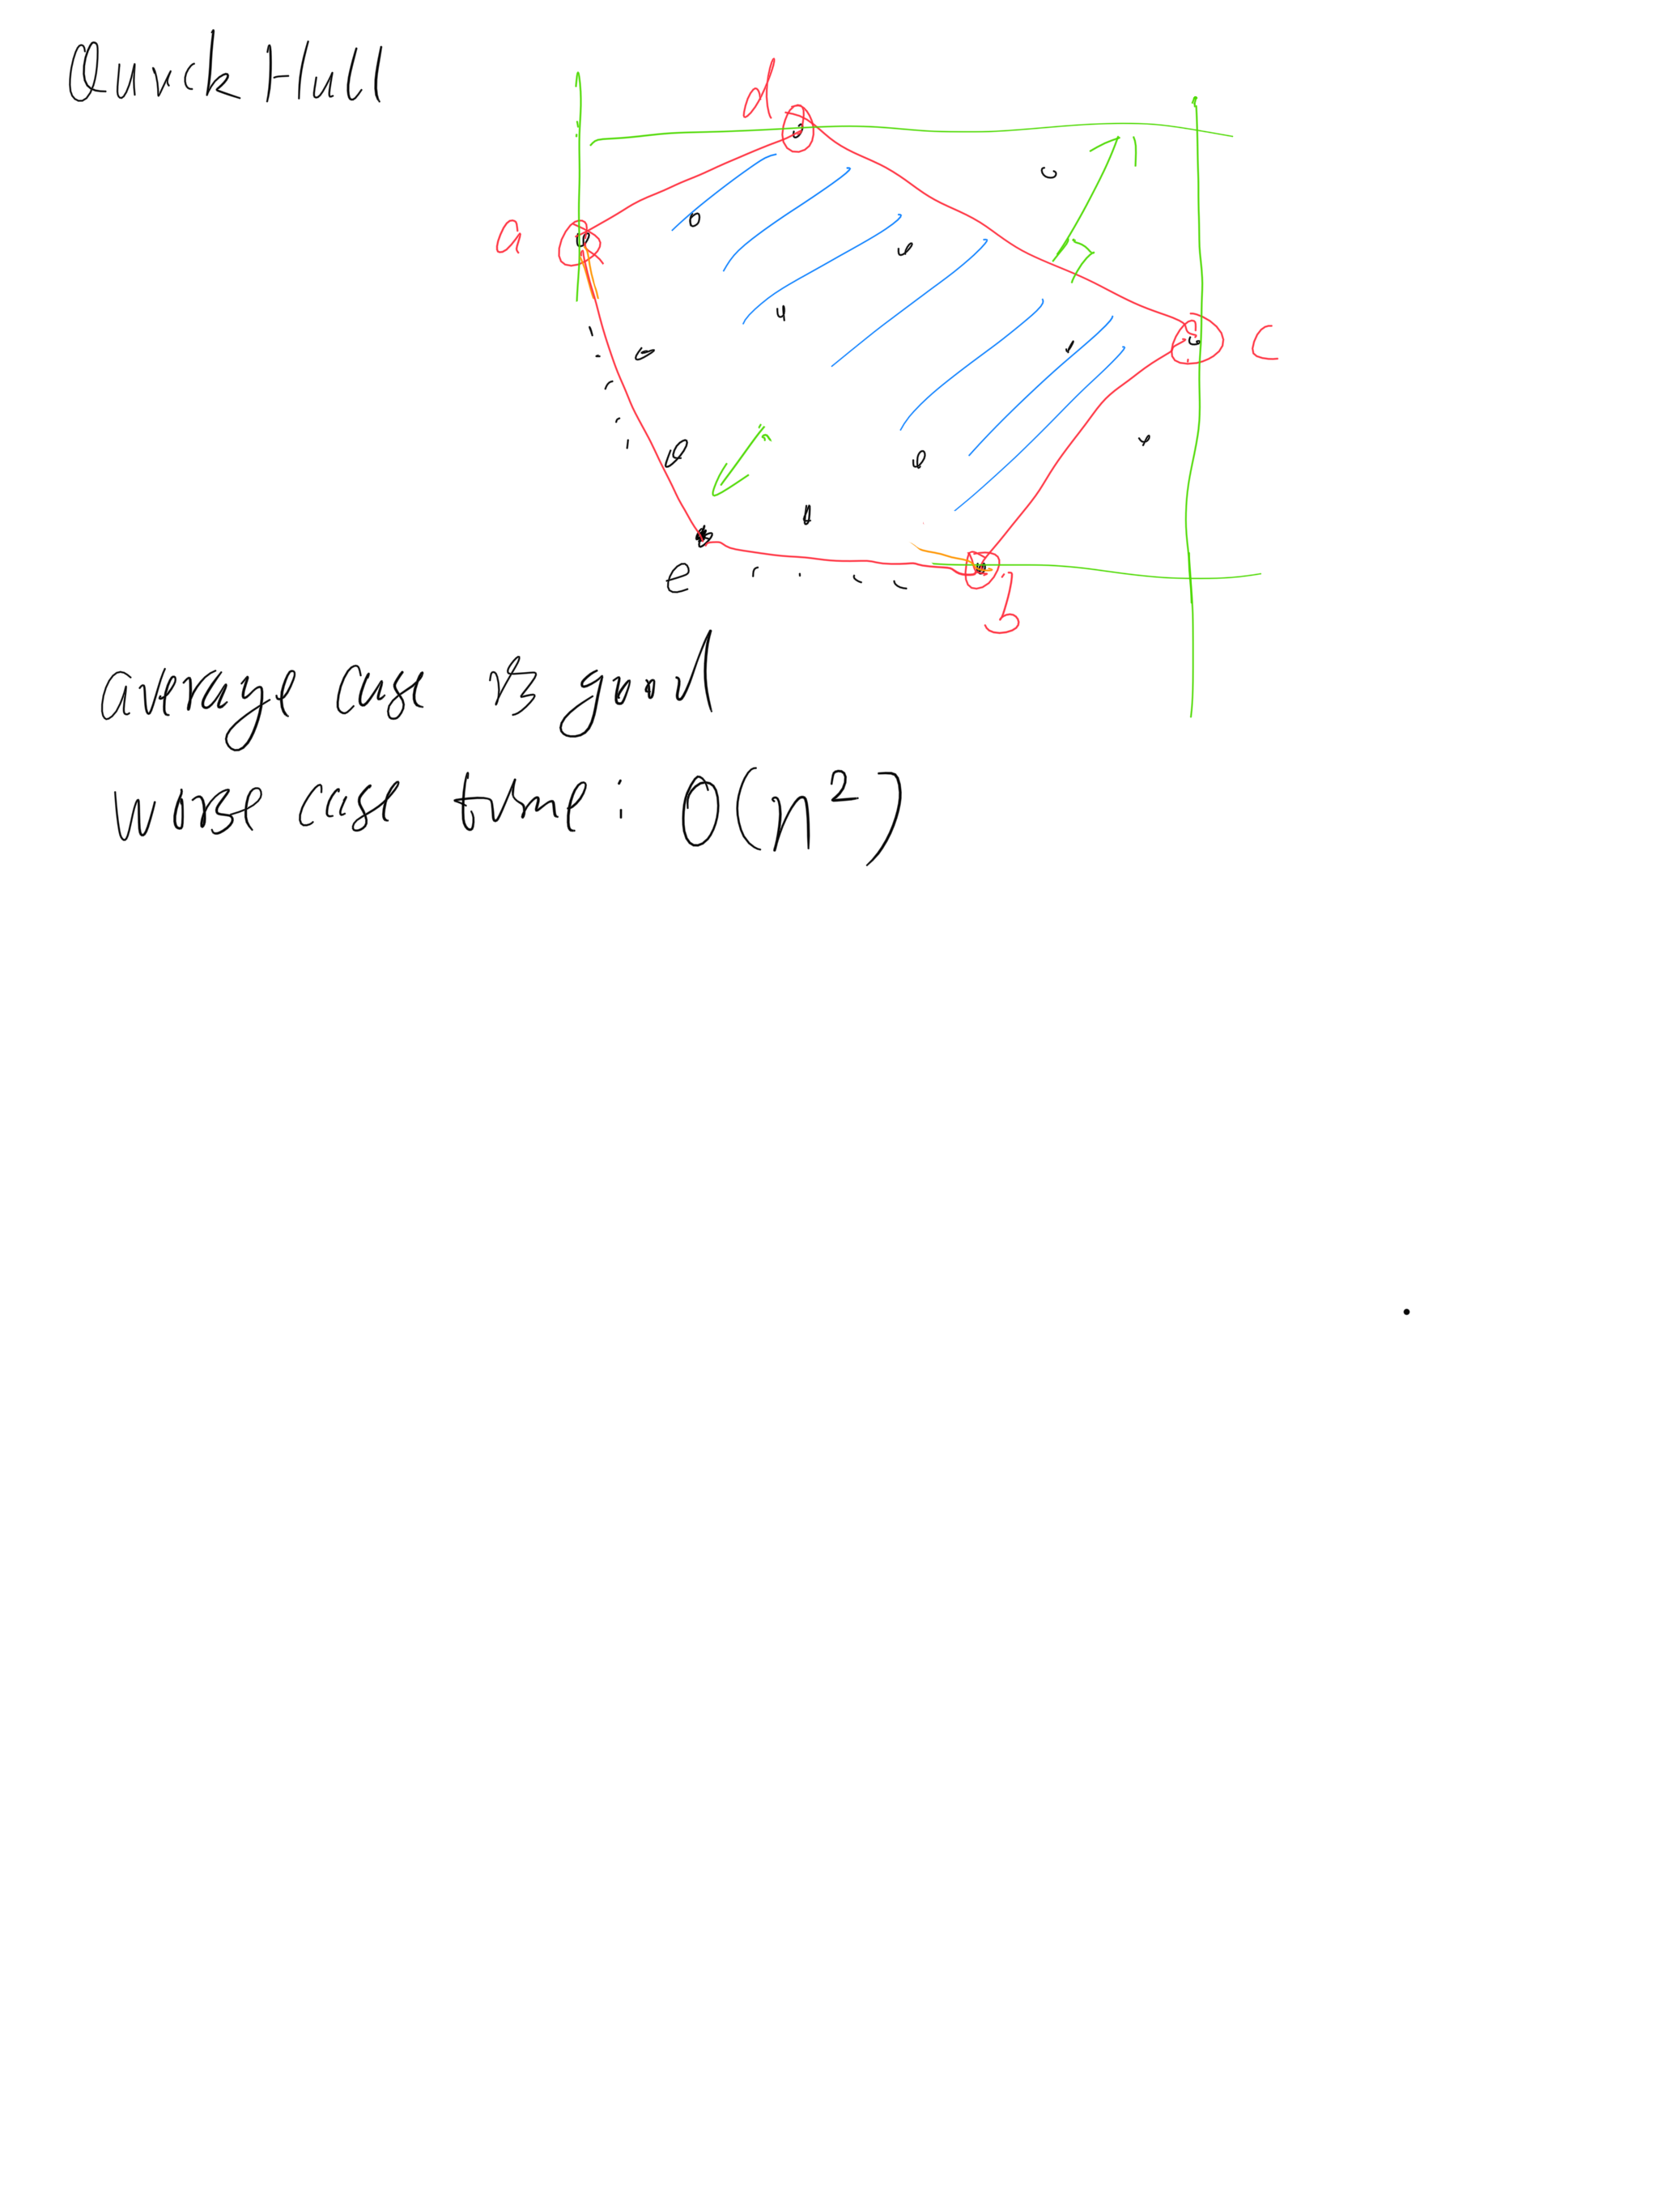 Quick Hull
d
a
c
e
b
average case is good
worse case time : O(n²)